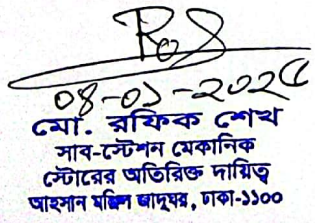 ০৪-০১-২০২৫
মো. রফিক শেখ
সাব-স্টেশন মেকানিক
স্টোরের অতিরিক্ত দায়িত্ব
আহসান মঞ্জিল জাদুঘর, ঢাকা-১১০০